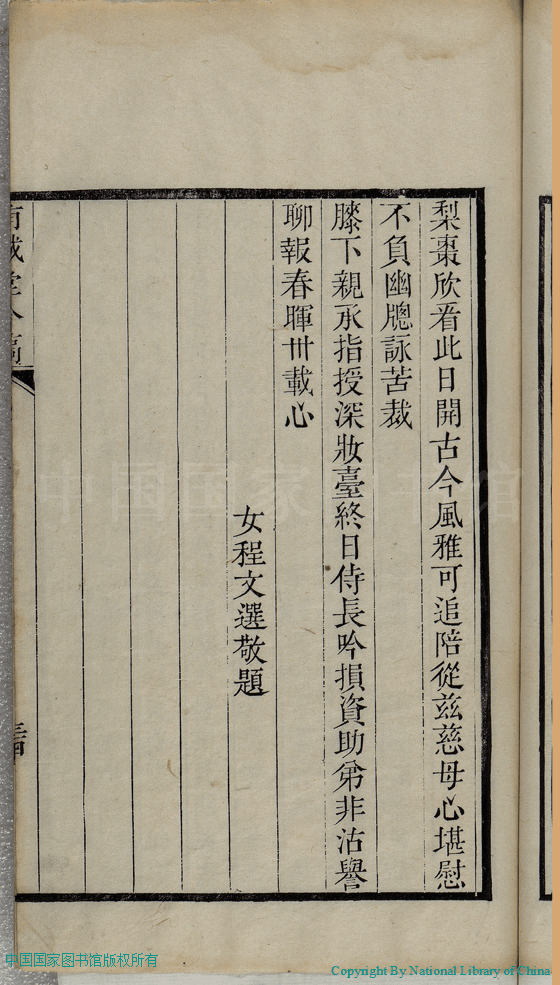 梨棗欣看此日開古今風雅可追陪從兹慈母心堪慰
不負幽牕詠苦裁
膝下親承指授深妝臺終日侍長吟損資助弟非沽譽
聊報春暉卅載心
女程文選敬題
中国国家图书馆版权所有
Copyright By National Library of China